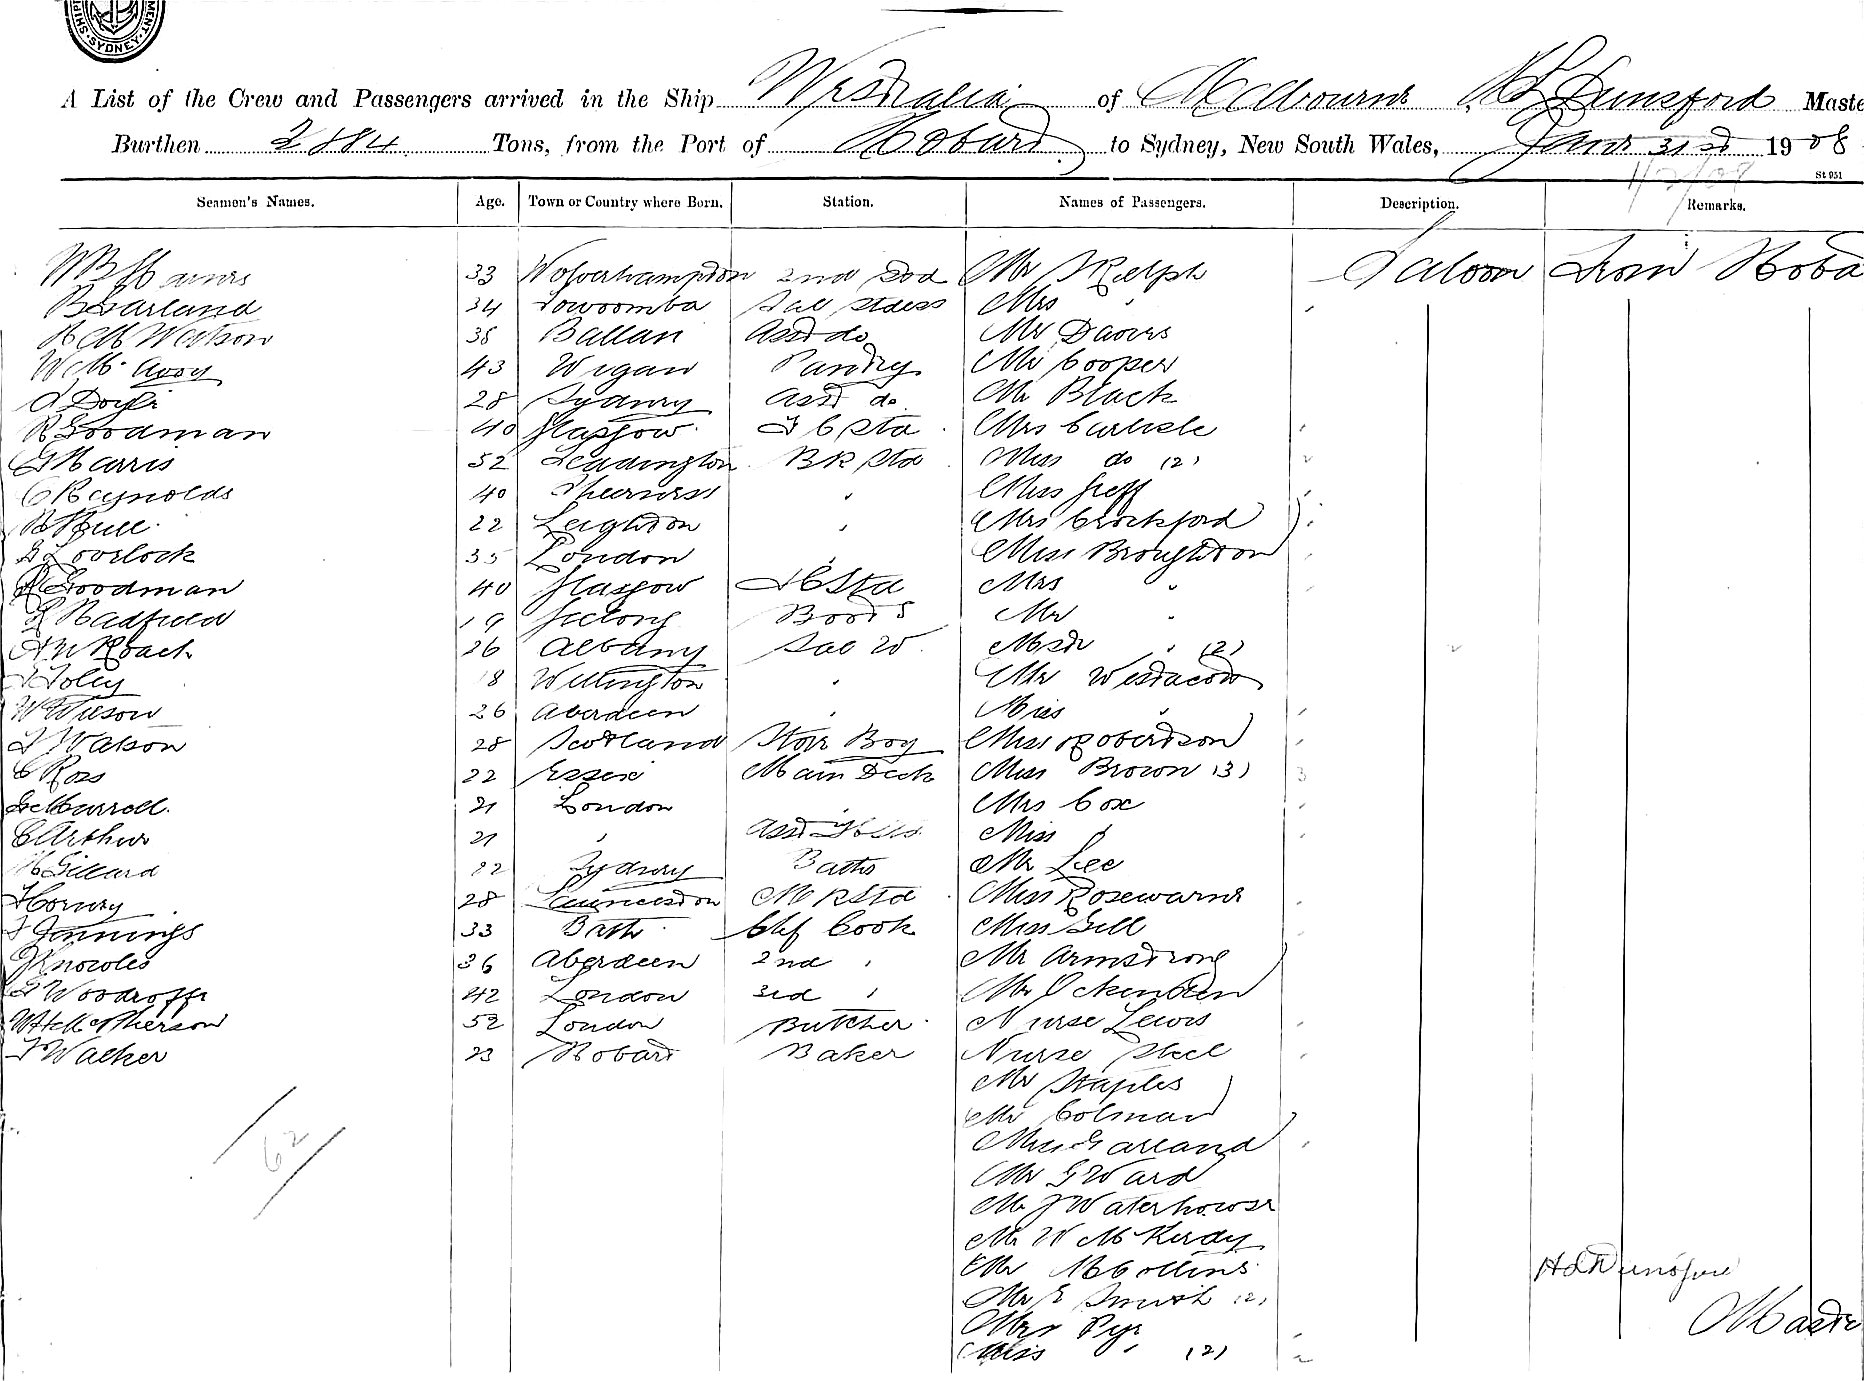 SYDNEY
A List of the Crew and Passengers arrived in the Ship Westralia of Melbourne, Dunsford Maste
Burthen 2884 Tons, from the Port of Hobart to Sydney, New South Wales, Jany 31st 1908
1/2/08 St 951
Seamen's Names. Age. Town or Country where Born. Station. Names of Passengers. Description. Remarks.
33 Wolverhampton 2nd Std Mr Ralph Saloon From Hoba
B Garland 34 Towoomba Sal Stdess Mrs "
Watson 38 Ballan Asst do Mr Davies
W McAvoy 43 Wigan Pantry Mr Cooper
Doyle 28 Sydney Asst do Mr Black
R Goodman 40 Glasgow Mrs Carlisle
G Harris 52 Leadington BR Std Miss do (2)
C Reynolds 40 Sheerness " Miss Greff
Bull 22 Leighton " Mrs Crockford
G Lovelock 35 London " Miss Broughton
Goodman 40 Glasgow Mrs "
Hadfield 19 Geelong Boots Mr "
Roach 26 Albany Sal W Mstr " (2)
Foley 18 Wellington " Mr Westacott
W Wilson 26 Aberdeen " Miss "
Watson 28 Scotland Store Boy Miss Robertson
C Ross 22 Essex Main Deck Miss Brown (3)
Murrell 21 London " Mrs Cox
C Arthur 21 " Asst Miss "
H Gillard 22 Sydney Baths Mr Lee
28 Launceston Miss Rosewarne
Jennings 33 Bath Chf Cook Miss Gill
Knowles 36 Aberdeen 2nd " Mr Armstrong
Woodroffe 42 London 3rd " Mr Ockenden
W H McPherson 52 London Butcher Nurse Lewis
Walker 23 Hobart Baker Nurse Steel
Mr Staples
Mr Colman
Miss Garland
Mr G Ward
Mr J Waterhouse
Mr W McKirdy
Mr Collins
Mr E Smith (2)
Mrs Pye
Miss " (2)
62
Dunsford
Maste